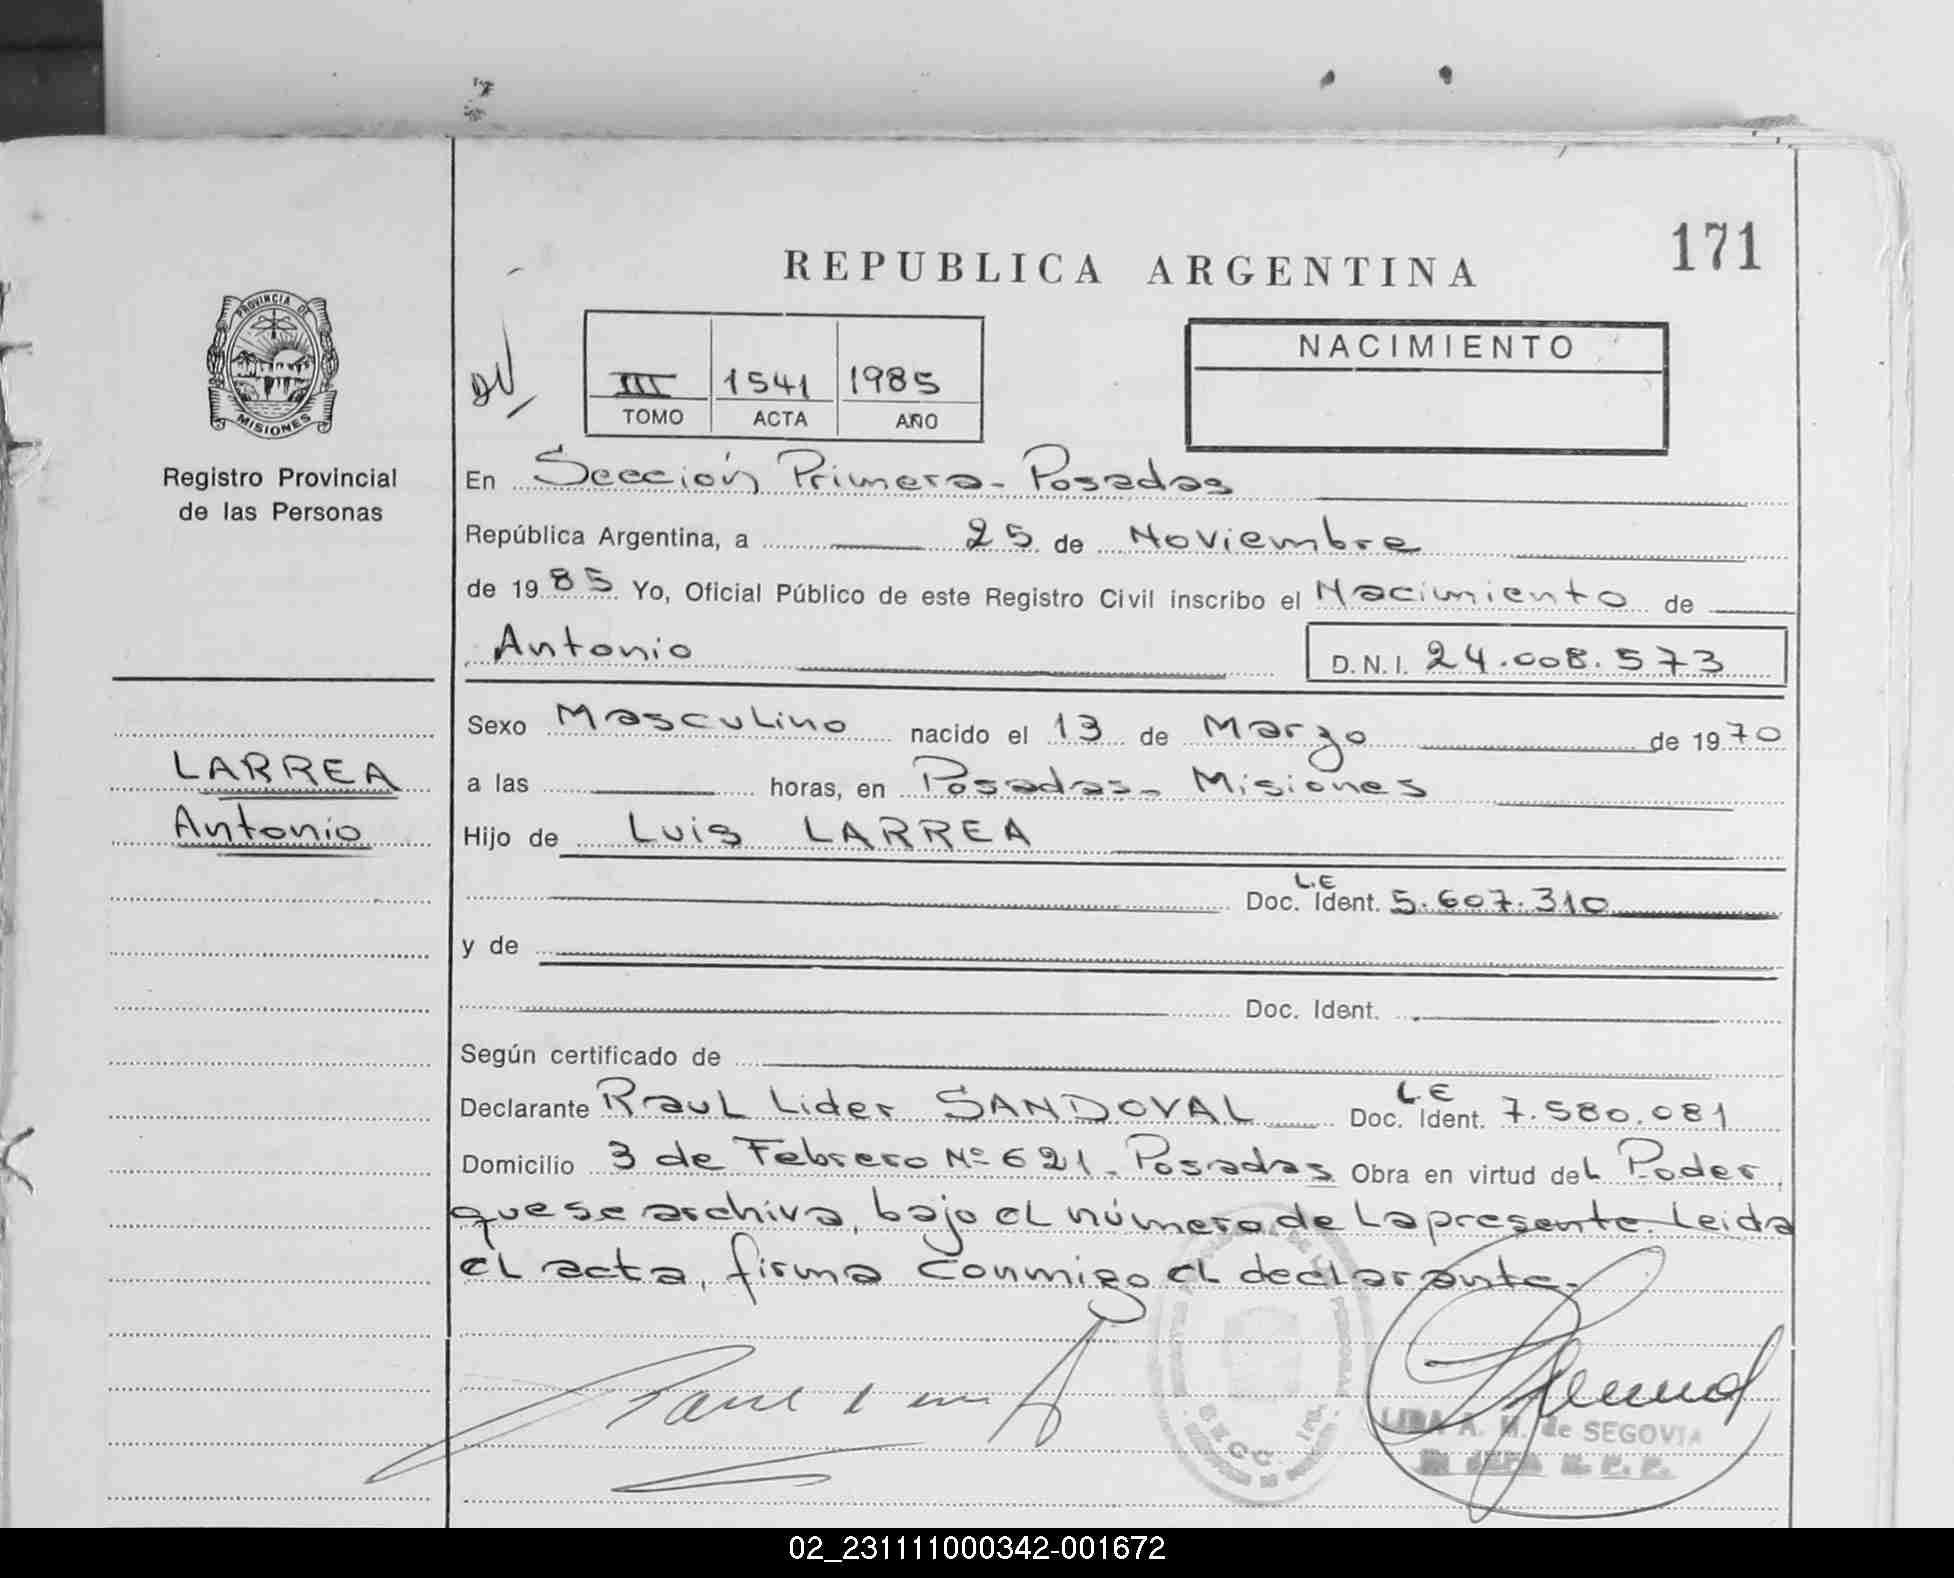 171
REPUBLICA ARGENTINA
PROVINCIA DE
MISIONES
Registro Provincial
de las Personas
III 1541 1985
TOMO ACTA AÑO
NACIMIENTO
En Sección Primera - Posadas
República Argentina, a 25 de Noviembre
de 1985 Yo, Oficial Público de este Registro Civil inscribo el Nacimiento de
Antonio D.N.I. 24.008.573
Sexo Masculino nacido el 13 de Marzo de 1970
LARREA
Antonio
a las horas, en Posadas - Misiones
Hijo de Luis LARREA
L.E
Doc. Ident. 5.607.310
y de
Doc. Ident.
Según certificado de
Declarante Raul Lider SANDOVAL L.E Doc. Ident. 7.580.081
Domicilio 3 de Febrero Nº 621 - Posadas Obra en virtud del Poder
que se archiva, bajo el número de la presente. Leida
el acta, firma conmigo el declarante.-
SECC.
LIDA A. M. de SEGOVIA
02_231111000342-001672